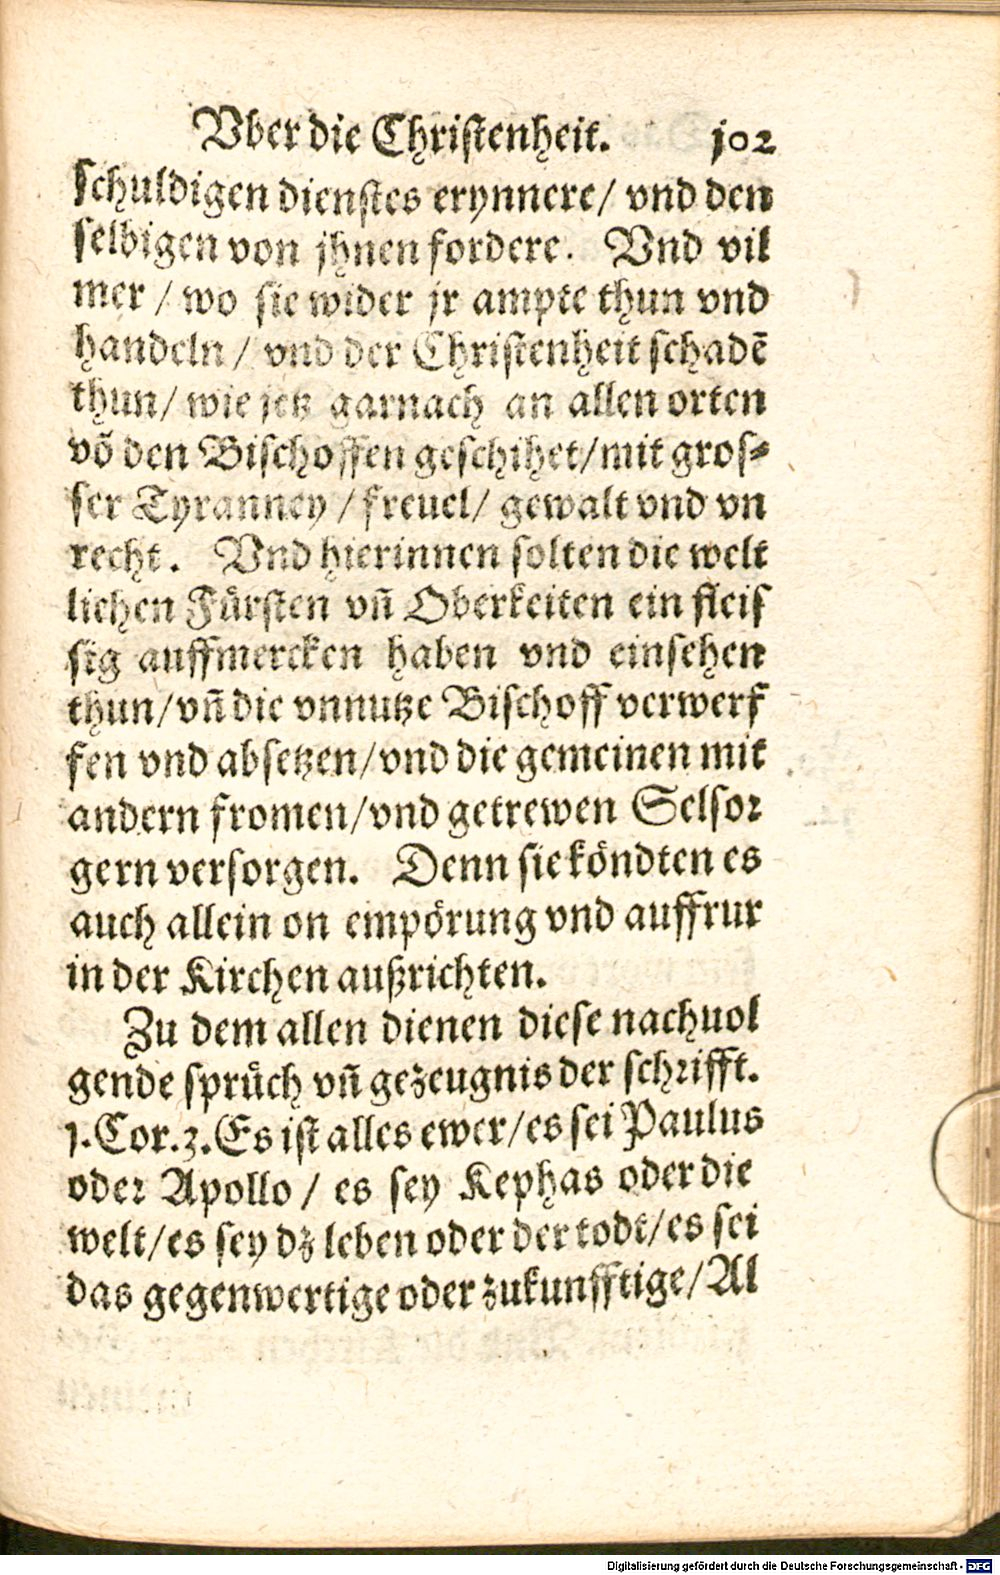 Vber die Christenheit. 102
schuldigen dienstes erynnere/ vnd den
selbigen von jhnen fordere. Vnd vil
mer / wo sie wider jr ampte thun vnd
handeln / vnd der Christenheit schadē
thun/ wie jetz garnach an allen orten
vō den Bischoffen geschihet/mit gros⸗
ser Tyranney / freuel/ gewalt vnd vn
recht. Vnd hierinnen solten die welt
lichen Fürsten vñ Oberkeiten ein fleis
sig auffmercken haben vnd einsehen
thun/vñ die vnnutze Bischoff verwerf
fen vnd absetzen/vnd die gemeinen mit
andern fromen/vnd getrewen Selsor
gern versorgen. Denn sie köndten es
auch allein on empörung vnd auffrur
in der Kirchen außrichten.
Zu dem allen dienen diese nachuol
gende sprüch vñ gezeugnis der schrifft.
1.Cor.3.Es ist alles ewer/es sei Paulus
oder Apollo / es sey Kephas oder die
welt/es sey dz leben oder der todt/es sei
das gegenwertige oder zukunfftige/Al
Digitalisierung gefördert durch die Deutsche Forschungsgemeinschaft - DFG